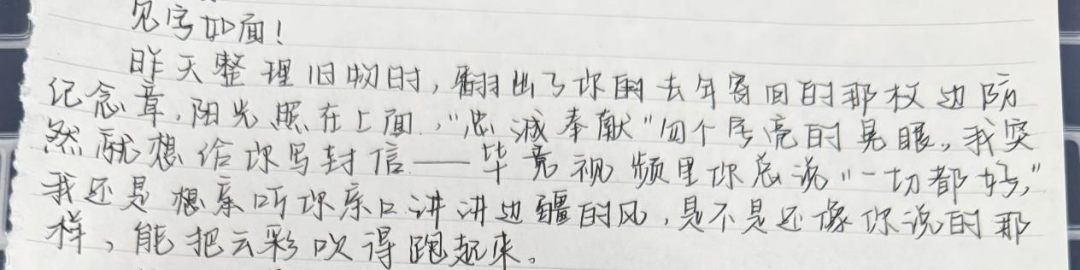 见字如面！
昨天整理旧物时，翻出了你去年寄回的那枚边防
纪念章，阳光照在上面，“忠诚奉献”四个字亮的晃眼。我突
然就想给你写封信——毕竟视频里你总说“一切都好，”
我还是想亲听你亲口讲讲边疆的风，是不是还像你说的那
样，能把云彩吹得跑起来。